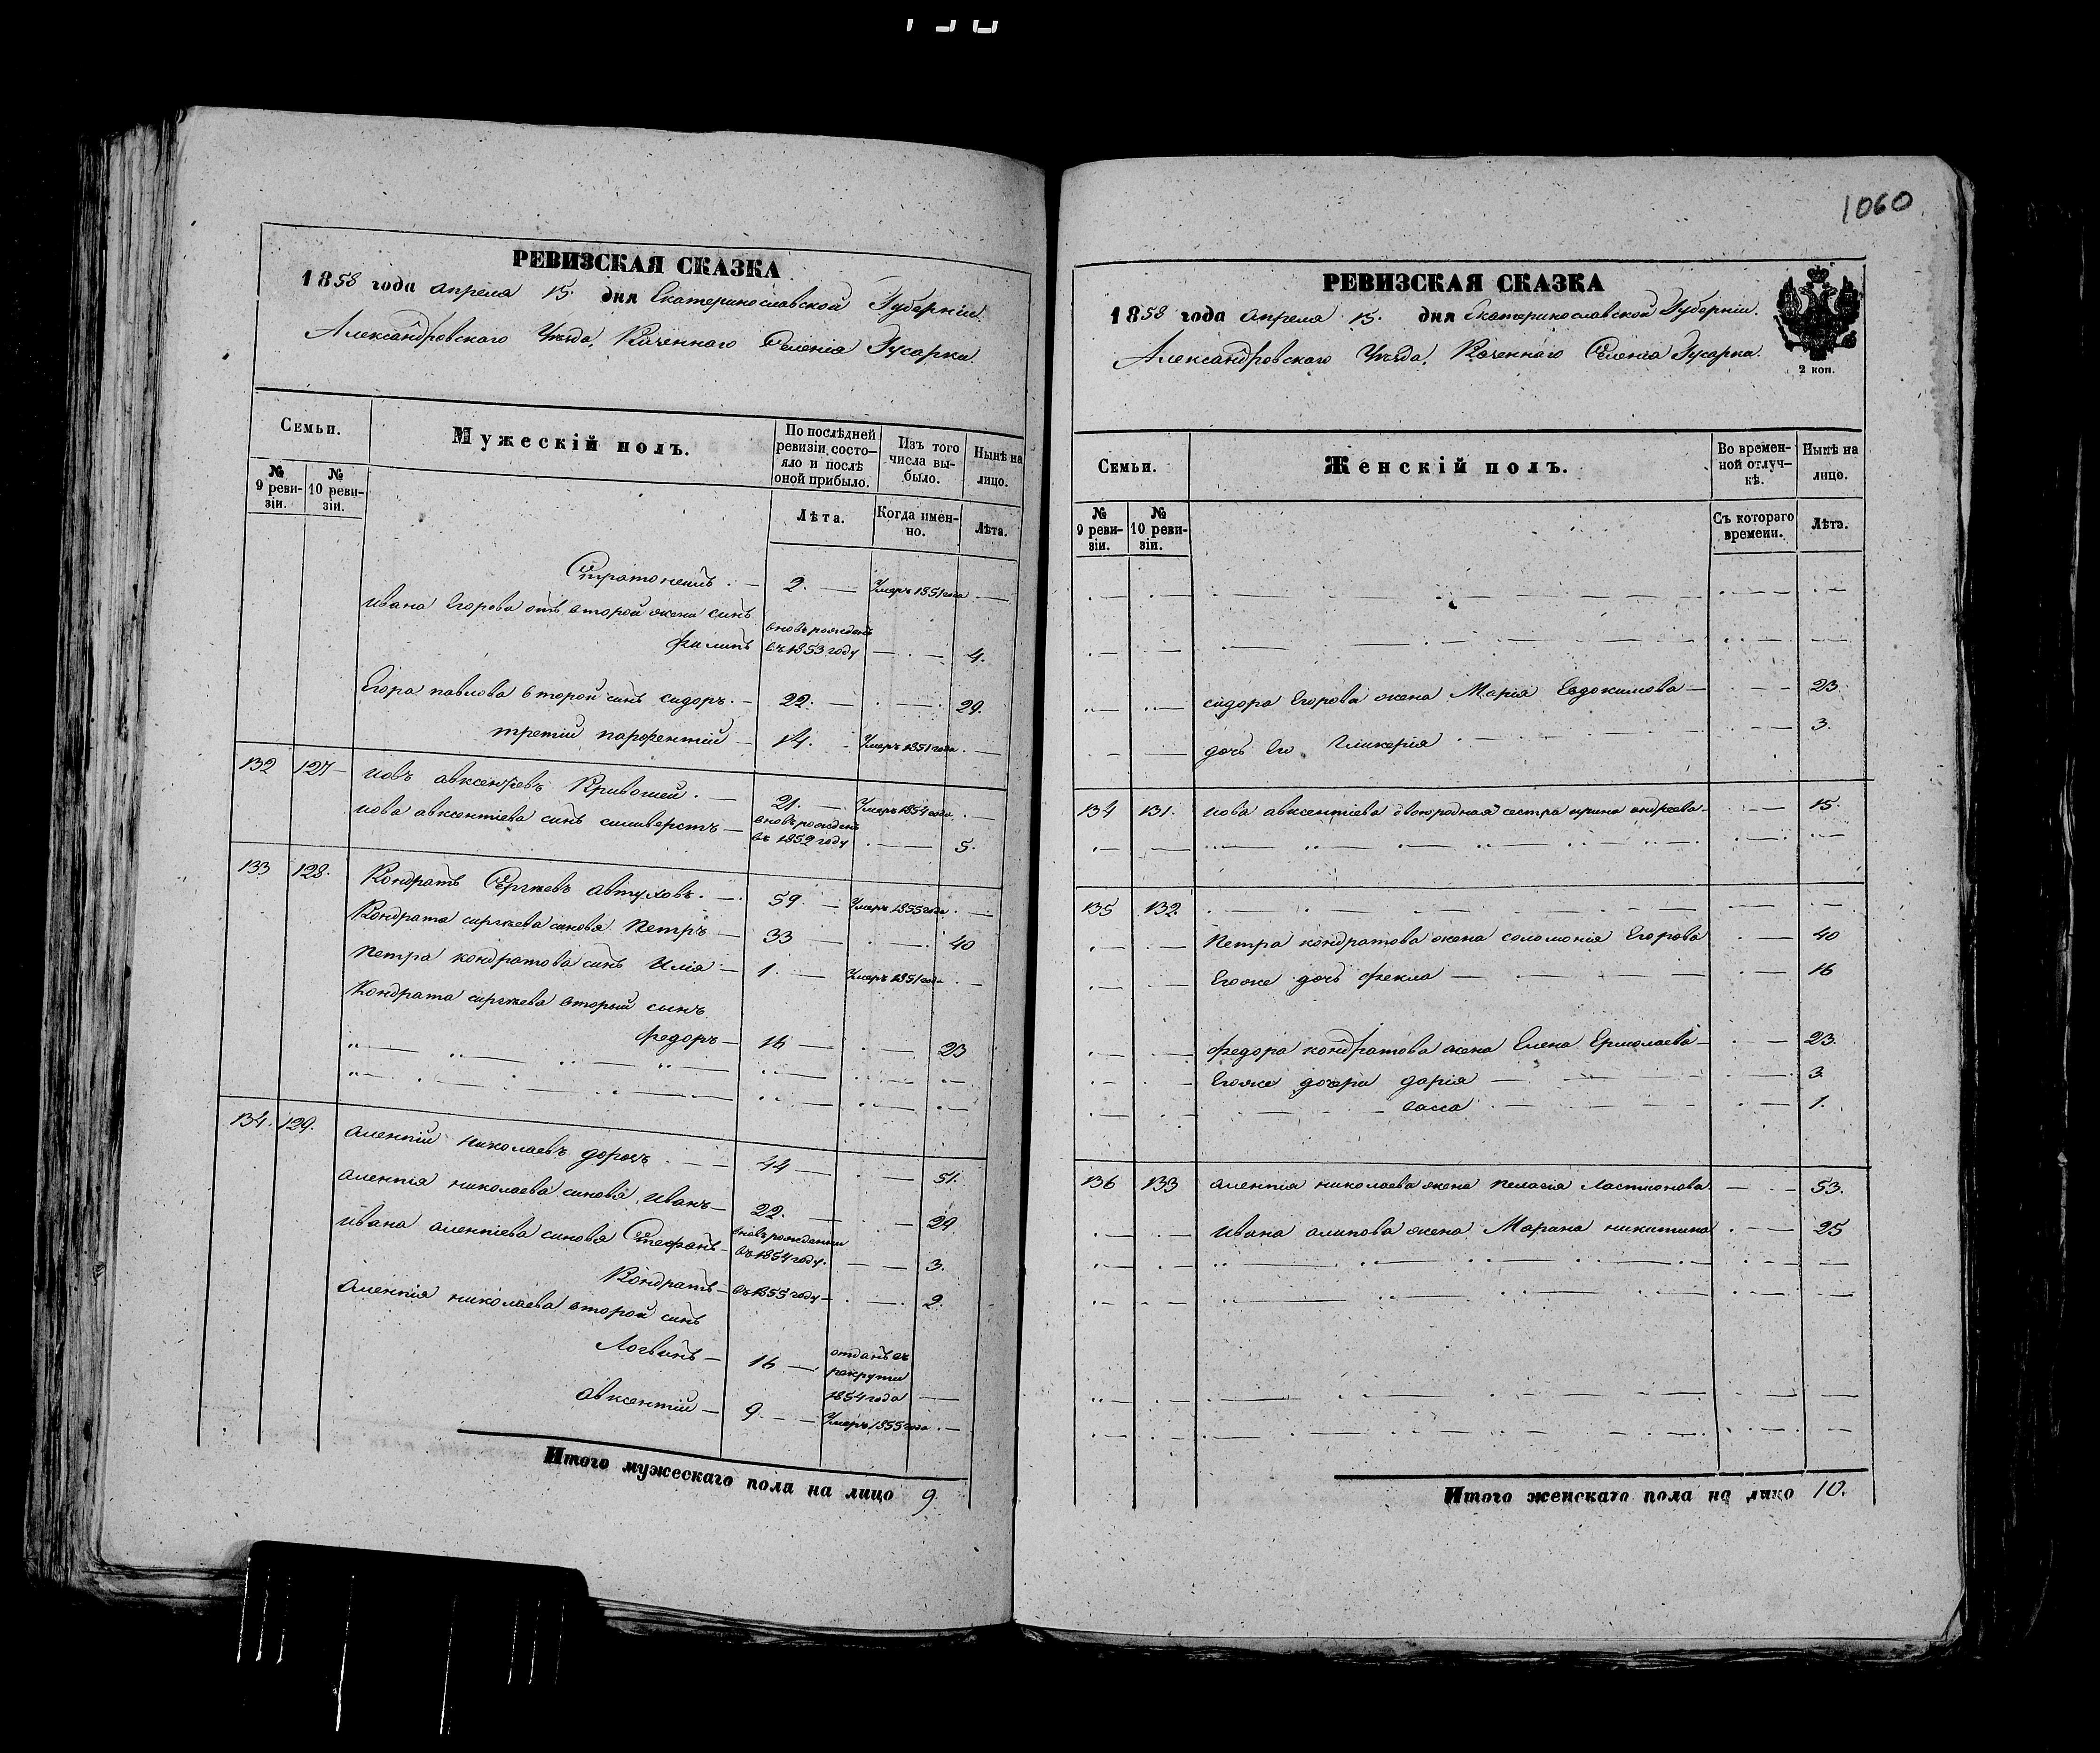 1060
РЕВИЗСКАЯ СКАЗКА
1858 года апреля 15. дня Екатеринославской Губерніи.
Александровского Уѣзда, Казеннаго Селенія Гусарка.
Семьи.
Мужескій полъ.
По послѣдней ревизіи состо-
яло и послѣ
оной прибыло.
Изъ того
числа вы-
было.
Нынѣ на
лицо.
№
9 реви-
зіи.
№
10 реви-
зіи.
Лѣта.
Когда имен-
но.
Лѣта.
Стратонемъ . — 2. — Умеръ 1851 года . —
Ивана Егорова отъ второй жены сынъ
Филипъ вновь рожденъ въ 1853 году — . — 4.
Егора павлова второй сынъ сидоръ . — 22. — . — . 29.
третій парфентій — 14. — Умеръ 1851 года . —
132 127 — Иовъ авксентіевъ Кривошей . — 21. — Умеръ 1854 года . —
Иова авксентіева сынъ силиверстъ — вновь рожденъ въ 1852 году . — 5.
133 128. Кондратъ Сергѣевъ автуховъ . — 59. — Умеръ 1855 года . —
Кондрата сиргѣева синовя Петръ — 33 — . — . 40
Петра кондратова сынъ Илія — 1. — Умеръ 1851 года . —
Кондрата сиргѣева вторый сынъ
Федоръ — 16 — . — . 23
134. 129. Алентій николаевъ дорошъ . — — 44 — . — 51.
алентія николаева синовя, Иванъ — 22. — . — 29
Ивана алентіева синовя Стефанъ — вновь рожденъ въ 1854 году . — — 3.
Кондратъ — въ 1855 году — . — . 2.
Алентія николаева второй сынъ
Логвинъ — 16 — отданъ въ рекруты 1854 года —
авксентій — 9. — — Умеръ 1855 года . —
Итого мужескаго пола на лицо 9.
РЕВИЗСКАЯ СКАЗКА
1858 года апреля 15. дня Екатеринославской Губерніи.
Александровскаго Уѣзда, Казеннаго Селенія Гусарка.
2 коп.
Семьи.
Женскій полъ.
Во времен-
ной отлуч-
кѣ.
Нынѣ на
лицо.
№
9 реви-
зіи.
№
10 реви-
зіи.
Съ котораго
времени.
Лѣта.
сидора Егорова жена Марія Евдокимова — . — — 23
дочь Его Гликерія . — 3.
134 131. Иова авксентіева двоюродная сестра ирина андреева . — 15.
135 132.
Петра кондратова жена соломонія Егорова . — 40
Егоже дочь Фекла — . — 16
Федора кондратова жена Елена Ермолаева — . — 23.
Егоже дочери дарія — . — 3.
васса . — 1.
136 133 алентія николаева жена пелагія Ластіонова — . — 53.
Ивана алипова жена Марина никитина . — — 25
Итого женскаго пола на лицо 10.